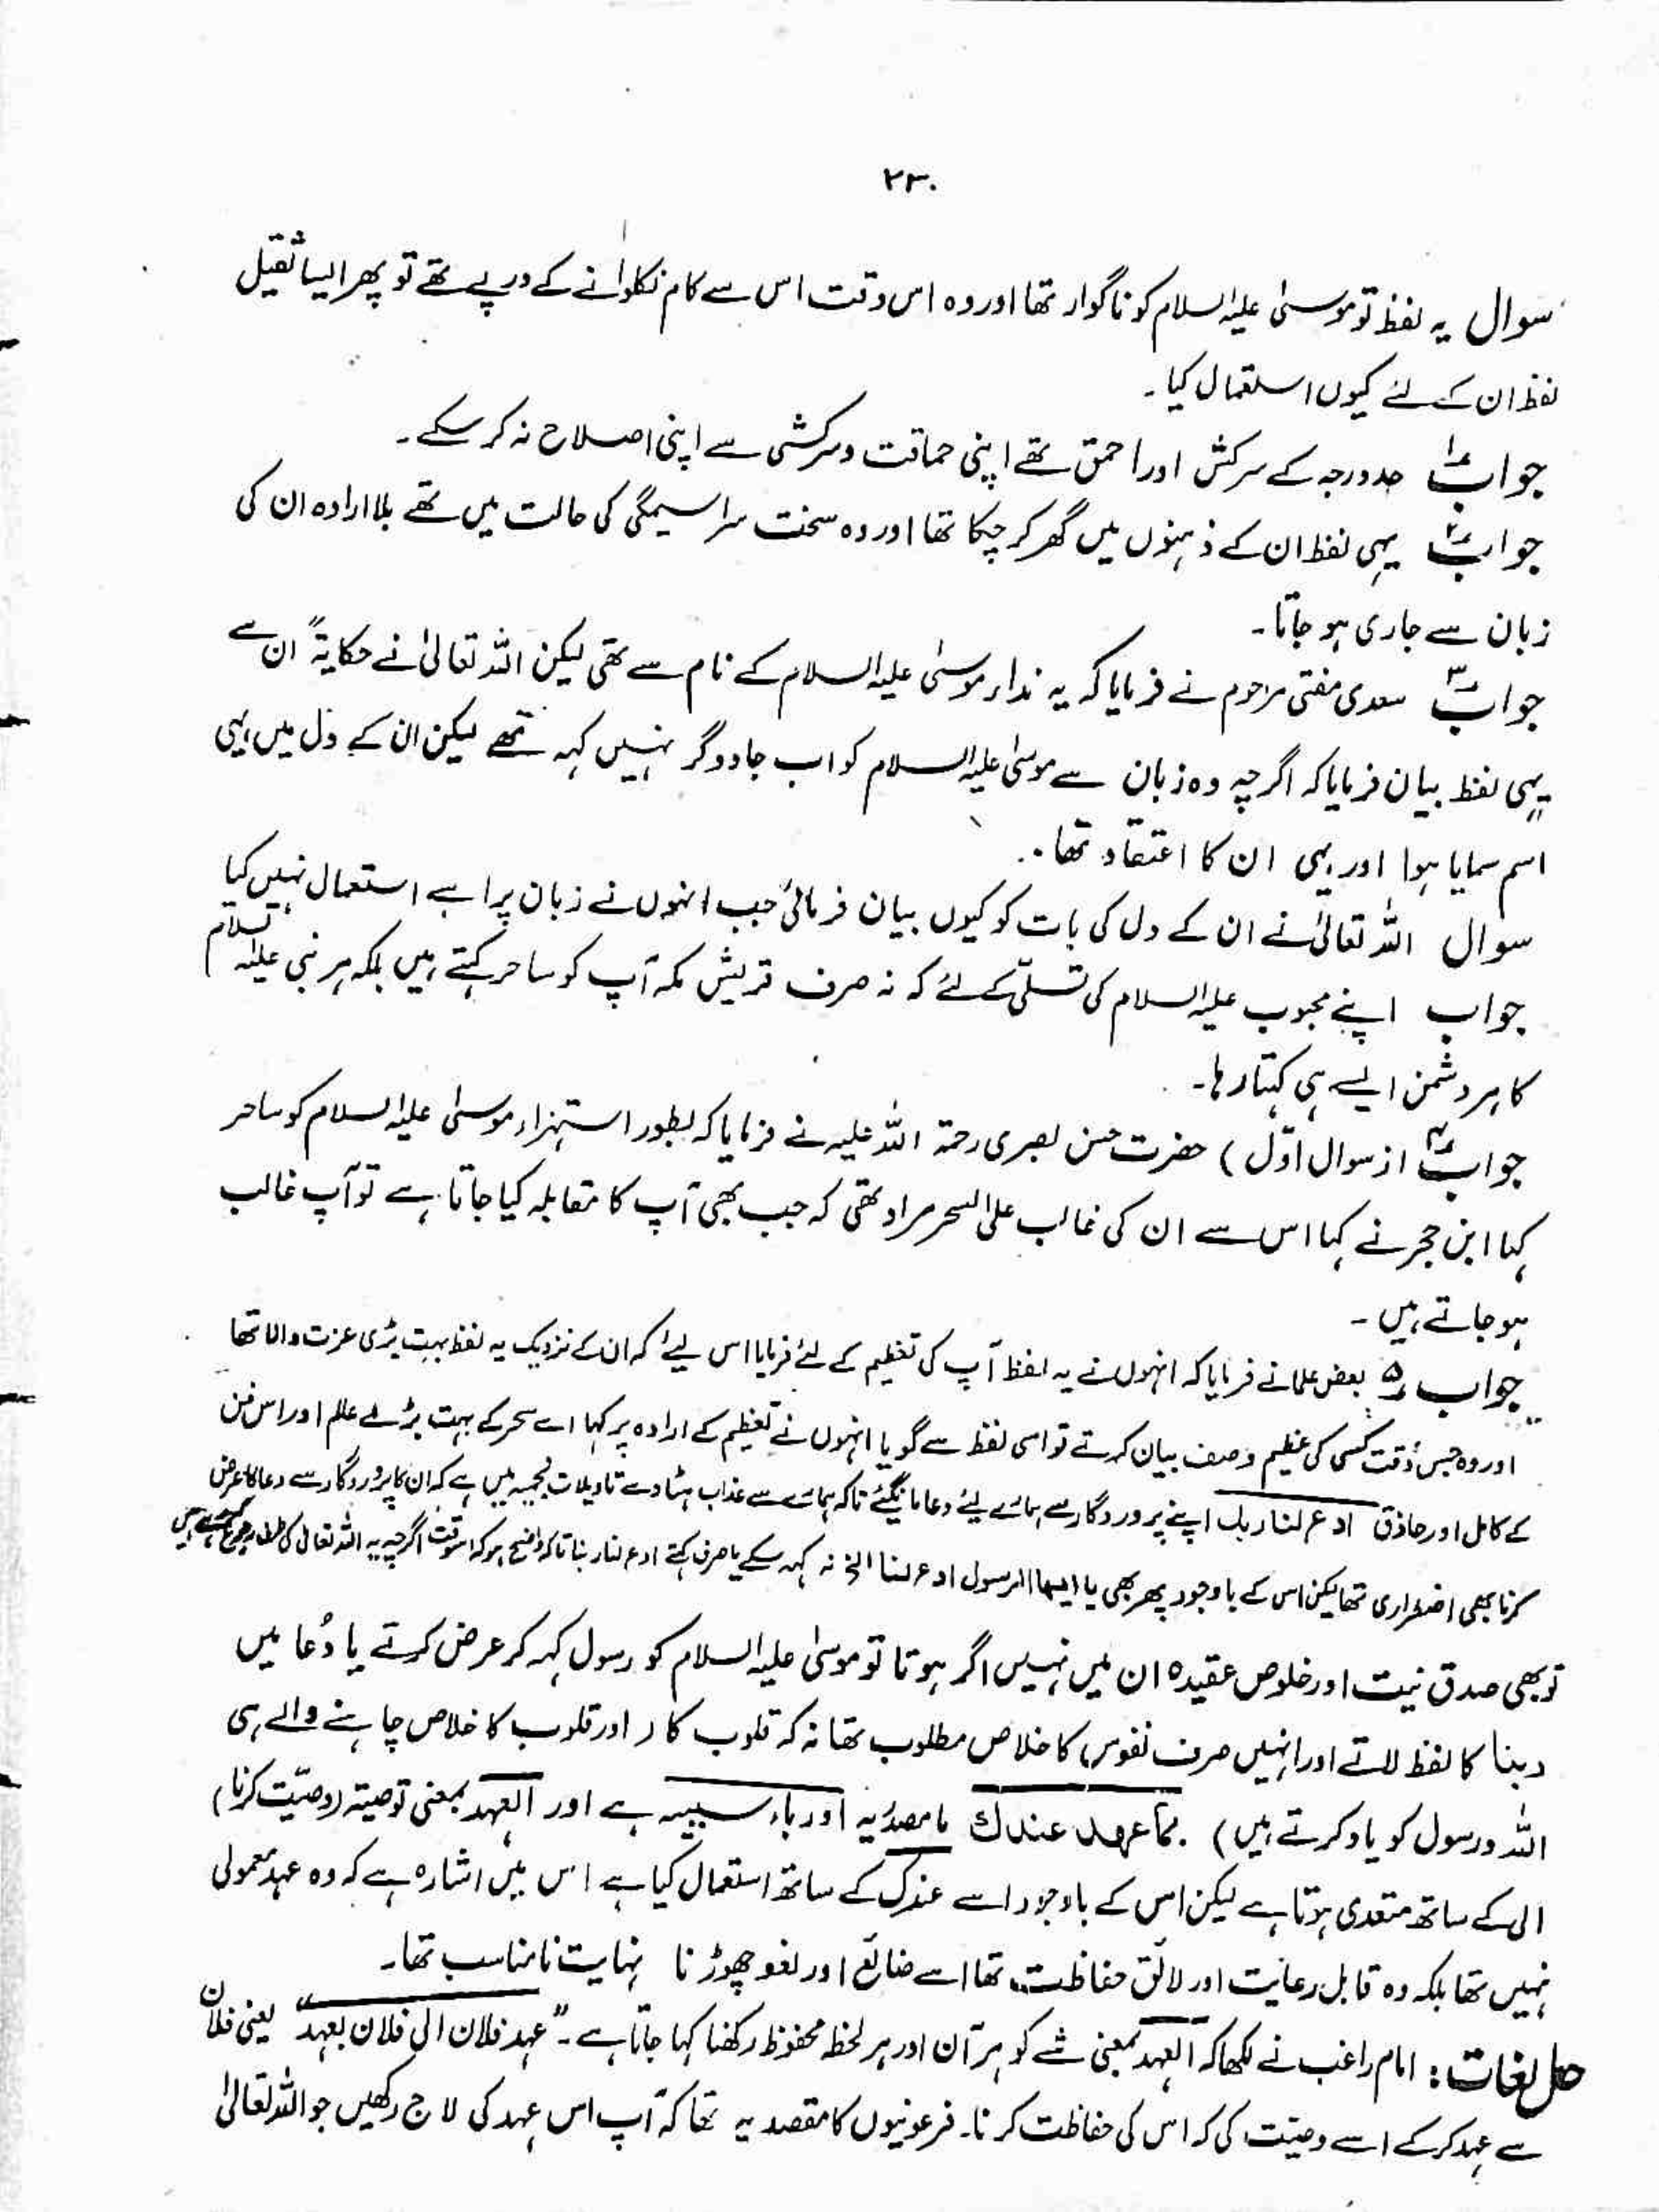 ۲۳۰
سوال یہ لفظ تو موسیٰ علیہ السلام کو ناگوار تھا اور وہ اس وقت اس سے کام نکلوانے کے درپے تھے تو پھر ایسا ثقیل
لفظ ان کے لئے کیوں استعمال کیا۔
جواب۱ حد درجہ کے سرکش اور احمق تھے اپنی حماقت و سرکشی سے اپنی اصلاح نہ کر سکے۔
جواب۲ یہی لفظ ان کے ذہنوں میں گھر کر چکا تھا اور وہ سخت سراسیمگی کی حالت میں تھے بلا ارادہ ان کی
زبان سے جاری ہو جاتا۔
جواب۳ سعدی مفتی مرحوم نے فرمایا کہ یہ نداء موسیٰ علیہ السلام کے نام سے تھی لیکن اللہ تعالیٰ نے حکایۃً ان سے
یہی لفظ بیان فرمایا کہ اگرچہ وہ زبان سے موسیٰ علیہ السلام کو اب جادوگر نہیں کہہ تھے لیکن ان کے دل میں یہی
اسم سمایا ہوا اور یہی ان کا اعتقاد تھا۔
سوال اللہ تعالیٰ نے ان کے دل کی بات کو کیوں بیان فرمائی جب انہوں نے زبان پر اسے استعمال نہیں کیا
جواب اپنے محبوب علیہ السلام کی تسلّی کے لئے کہ نہ صرف قریش مکہ آپ کو ساحر کہتے ہیں بلکہ ہر نبی علیہ السلام
کا ہر دشمن ایسے ہی کہتا رہا۔
جواب۴ از سوال اوّل) حضرت حسن بصری رحمۃ اللہ علیہ نے فرمایا کہ بطور استہزاء موسیٰ علیہ السلام کو ساحر
کہا ابن حجر نے کہا اس سے ان کی غالب علی السحر مراد تھی کہ جب بھی آپ کا مقابلہ کیا جاتا ہے تو آپ غالب
ہو جاتے ہیں۔
جواب۵ بعض علما نے فرمایا کہ انہوں نے یہ لفظ آپ کی تعظیم کے لئے فرمایا اس لیے کہ ان کے نزدیک یہ لفظ بہت بڑی عزت والا تھا
اور وہ جس وقت کسی کی عظیم وصف بیان کرتے تو اسی لفظ سے گویا انہوں نے تعظیم کے ارادہ پر کہا اے سحر کے بہت بڑے عالم اور اس فن
کے کامل اور حاذق ادع لنا ربك اپنے پروردگار سے ہمارے لیے دعا مانگئے تاکہ ہمارے سے عذاب ہٹا دے تاویلات نجمیہ میں ہے کہ ان کا پروردگار سے دعا کا عرض
کرنا بھی اضطراری تھا لیکن اس کے باوجود پھر بھی یا ایہا الرسول ادع لنا الخ نہ کہہ سکے یا صرف کہتے ادع لنا ربنا تاکہ واضح ہو کہ اسوقت اگرچہ یہ اللہ تعالیٰ کی طرف رجوع کر رہے ہیں
تو بھی صدق نیت اور خلوص عقیدہ ان میں نہیں اگر ہوتا تو موسیٰ علیہ السلام کو رسول کہہ کر عرض کرتے یا دُعا میں
ربنا کا لفظ لاتے اور انہیں صرف نفوس کا خلاص مطلوب تھا نہ کہ قلوب کا ر اور قلوب کا خلاص چاہنے والے ہی
اللہ و رسول کو یاد کرتے ہیں) بما عهد عندك ما مصدریہ اور باء سببیہ ہے اور العہد بمعنی توصیۃ (وصیّت کرنا)
الی کے ساتھ متعدی ہوتا ہے لیکن اس کے باوجود اسے عندک کے ساتھ استعمال کیا ہے اس میں اشارہ ہے کہ وہ عہد معمولی
نہیں تھا بلکہ وہ قابل رعایت اور لائق حفاظت تھا اسے ضائع اور لغو چھوڑنا نہایت نامناسب تھا۔
حل لغات: امام راغب نے لکھا کہ العہد بمعنی شے کو ہر آن اور ہر لحظہ محفوظ رکھنا کہا جاتا ہے۔ "عہد فلان الی فلان بعہد" یعنی فلان
سے عہد کر کے اسے وصیّت کی کہ اس کی حفاظت کرنا۔ فرعونیوں کا مقصد یہ تھا کہ آپ اس عہد کی لاج رکھیں جو اللہ تعالیٰ